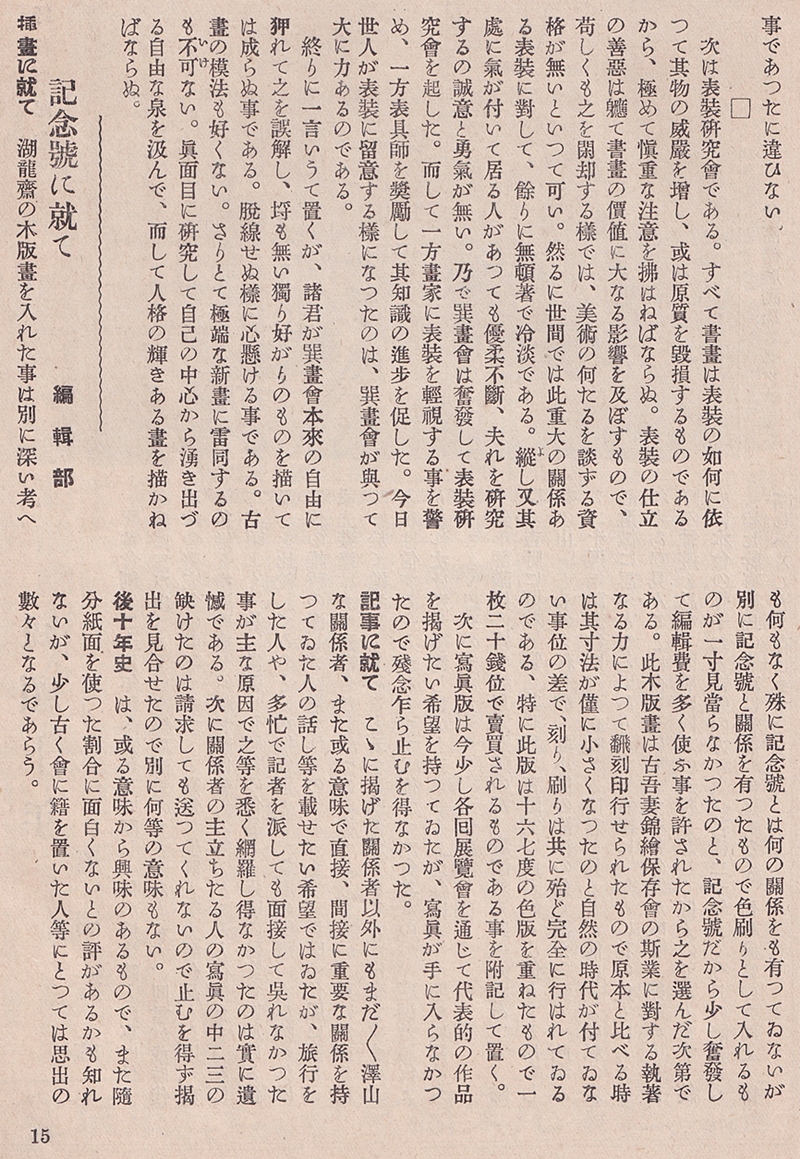 事であつたに違ひない。
□
次は表裝硏究會である。すべて書畫は表裝の如何に依
つて其物の威嚴を增し、或は原質を毀損するものである
から、極めて愼重な注意を拂はねばならぬ。表裝の仕立
の善惡は軈て書畫の價値に大なる影響を及ぼすもので、
苟しくも之を閑却する樣では、美術の何たるを談ずる資
格が無いといつて可い。然るに世間では此重大の關係あ
る表裝に對して、餘りに無頓著で冷淡である。縱し又其
處に氣が付いて居る人があつても優柔不斷、夫れを硏究
するの誠意と勇氣が無い。乃で巽畫會は奮發して表裝硏
究會を起した。而して一方畫家に表裝を輕視する事を警
め、一方表具師を奬勵して其知識の進步を促した。今日
世人が表裝に留意する樣になつたのは、巽畫會が與つて
大に力あるのである。
終りに一言いうて置くが、諸君が巽畫會本來の自由に
狎れて之を誤解し、埒も無い獨り好がりのものを描いて
は成らぬ事である。脫線せぬ樣に心懸ける事である。古
畫の模法も好くない。さりとて極端な新畫に雷同するの
も不可ない。眞面目に硏究して自己の中心から湧き出づ
る自由な泉を汲んで、而して人格の輝きある畫を描かね
ばならぬ。
記念號に就て
編輯部
揷畫に就て　湖龍齋の木版畫を入れた事は別に深い考へ
も何もなく殊に記念號とは何の關係をも有つてゐないが
別に記念號と關係を有つたもので色刷りとして入れるも
のが一寸見當らなかつたのと、記念號だから少し奮發し
て編輯費を多く使ふ事を許されたから之を選んだ次第で
ある。此木版畫は古吾妻錦繪保存會の斯業に對する執著
なる力によつて飜刻印行せられたもので原本と比べる時
は其寸法が僅に小さくなつたのと自然の時代が付てゐな
い事位の差で、刻り、刷りは共に殆ど完全に行はれてゐる
のである、特に此版は十六七度の色版を重ねたもので一
枚二十錢位で賣買されるものである事を附記して置く。
次に寫眞版は今少し各回展覽會を通じて代表的の作品
を揭げたい希望を持つてゐたが、寫眞が手に入らなかつ
たので殘念乍ら止むを得なかつた。
記事に就て　こゝに揭げた關係者以外にもまだ〱澤山
な關係者、また或る意味で直接、間接に重要な關係を持
つてゐた人の話し等を載せたい希望ではゐたが、旅行を
した人や、多忙で記者を派しても面接して吳れなかつた
事が主な原因で之等を悉く網羅し得なかつたのは實に遺
憾である。次に關係者の主立ちたる人の寫眞の中二三の
缺けたのは請求しても送つてくれないので止むを得ず揭
出を見合せたので別に何等の意味もない。
後十年史　は、或る意味から興味のあるもので、また隨
分紙面を使つた割合に面白くないとの評があるかも知れ
ないが、少し古く會に籍を置いた人等にとつては思出の
數々となるであらう。
15